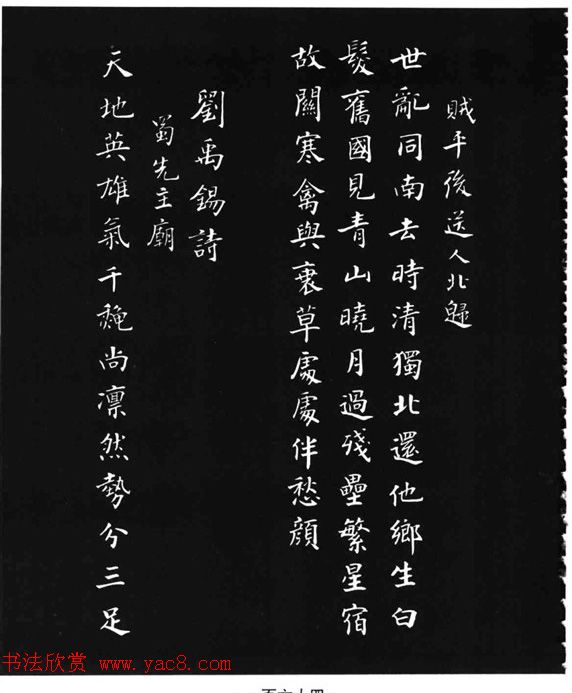 賊平後送人北歸
世亂同南去時清獨北還他鄉生白
髮舊國見青山曉月過殘壘繁星宿
故關寒禽與衰草處處伴愁顏
劉禹錫詩
蜀先主廟
天地英雄氣千秋尚凜然勢分三足
书法欣赏 www.yac8.com